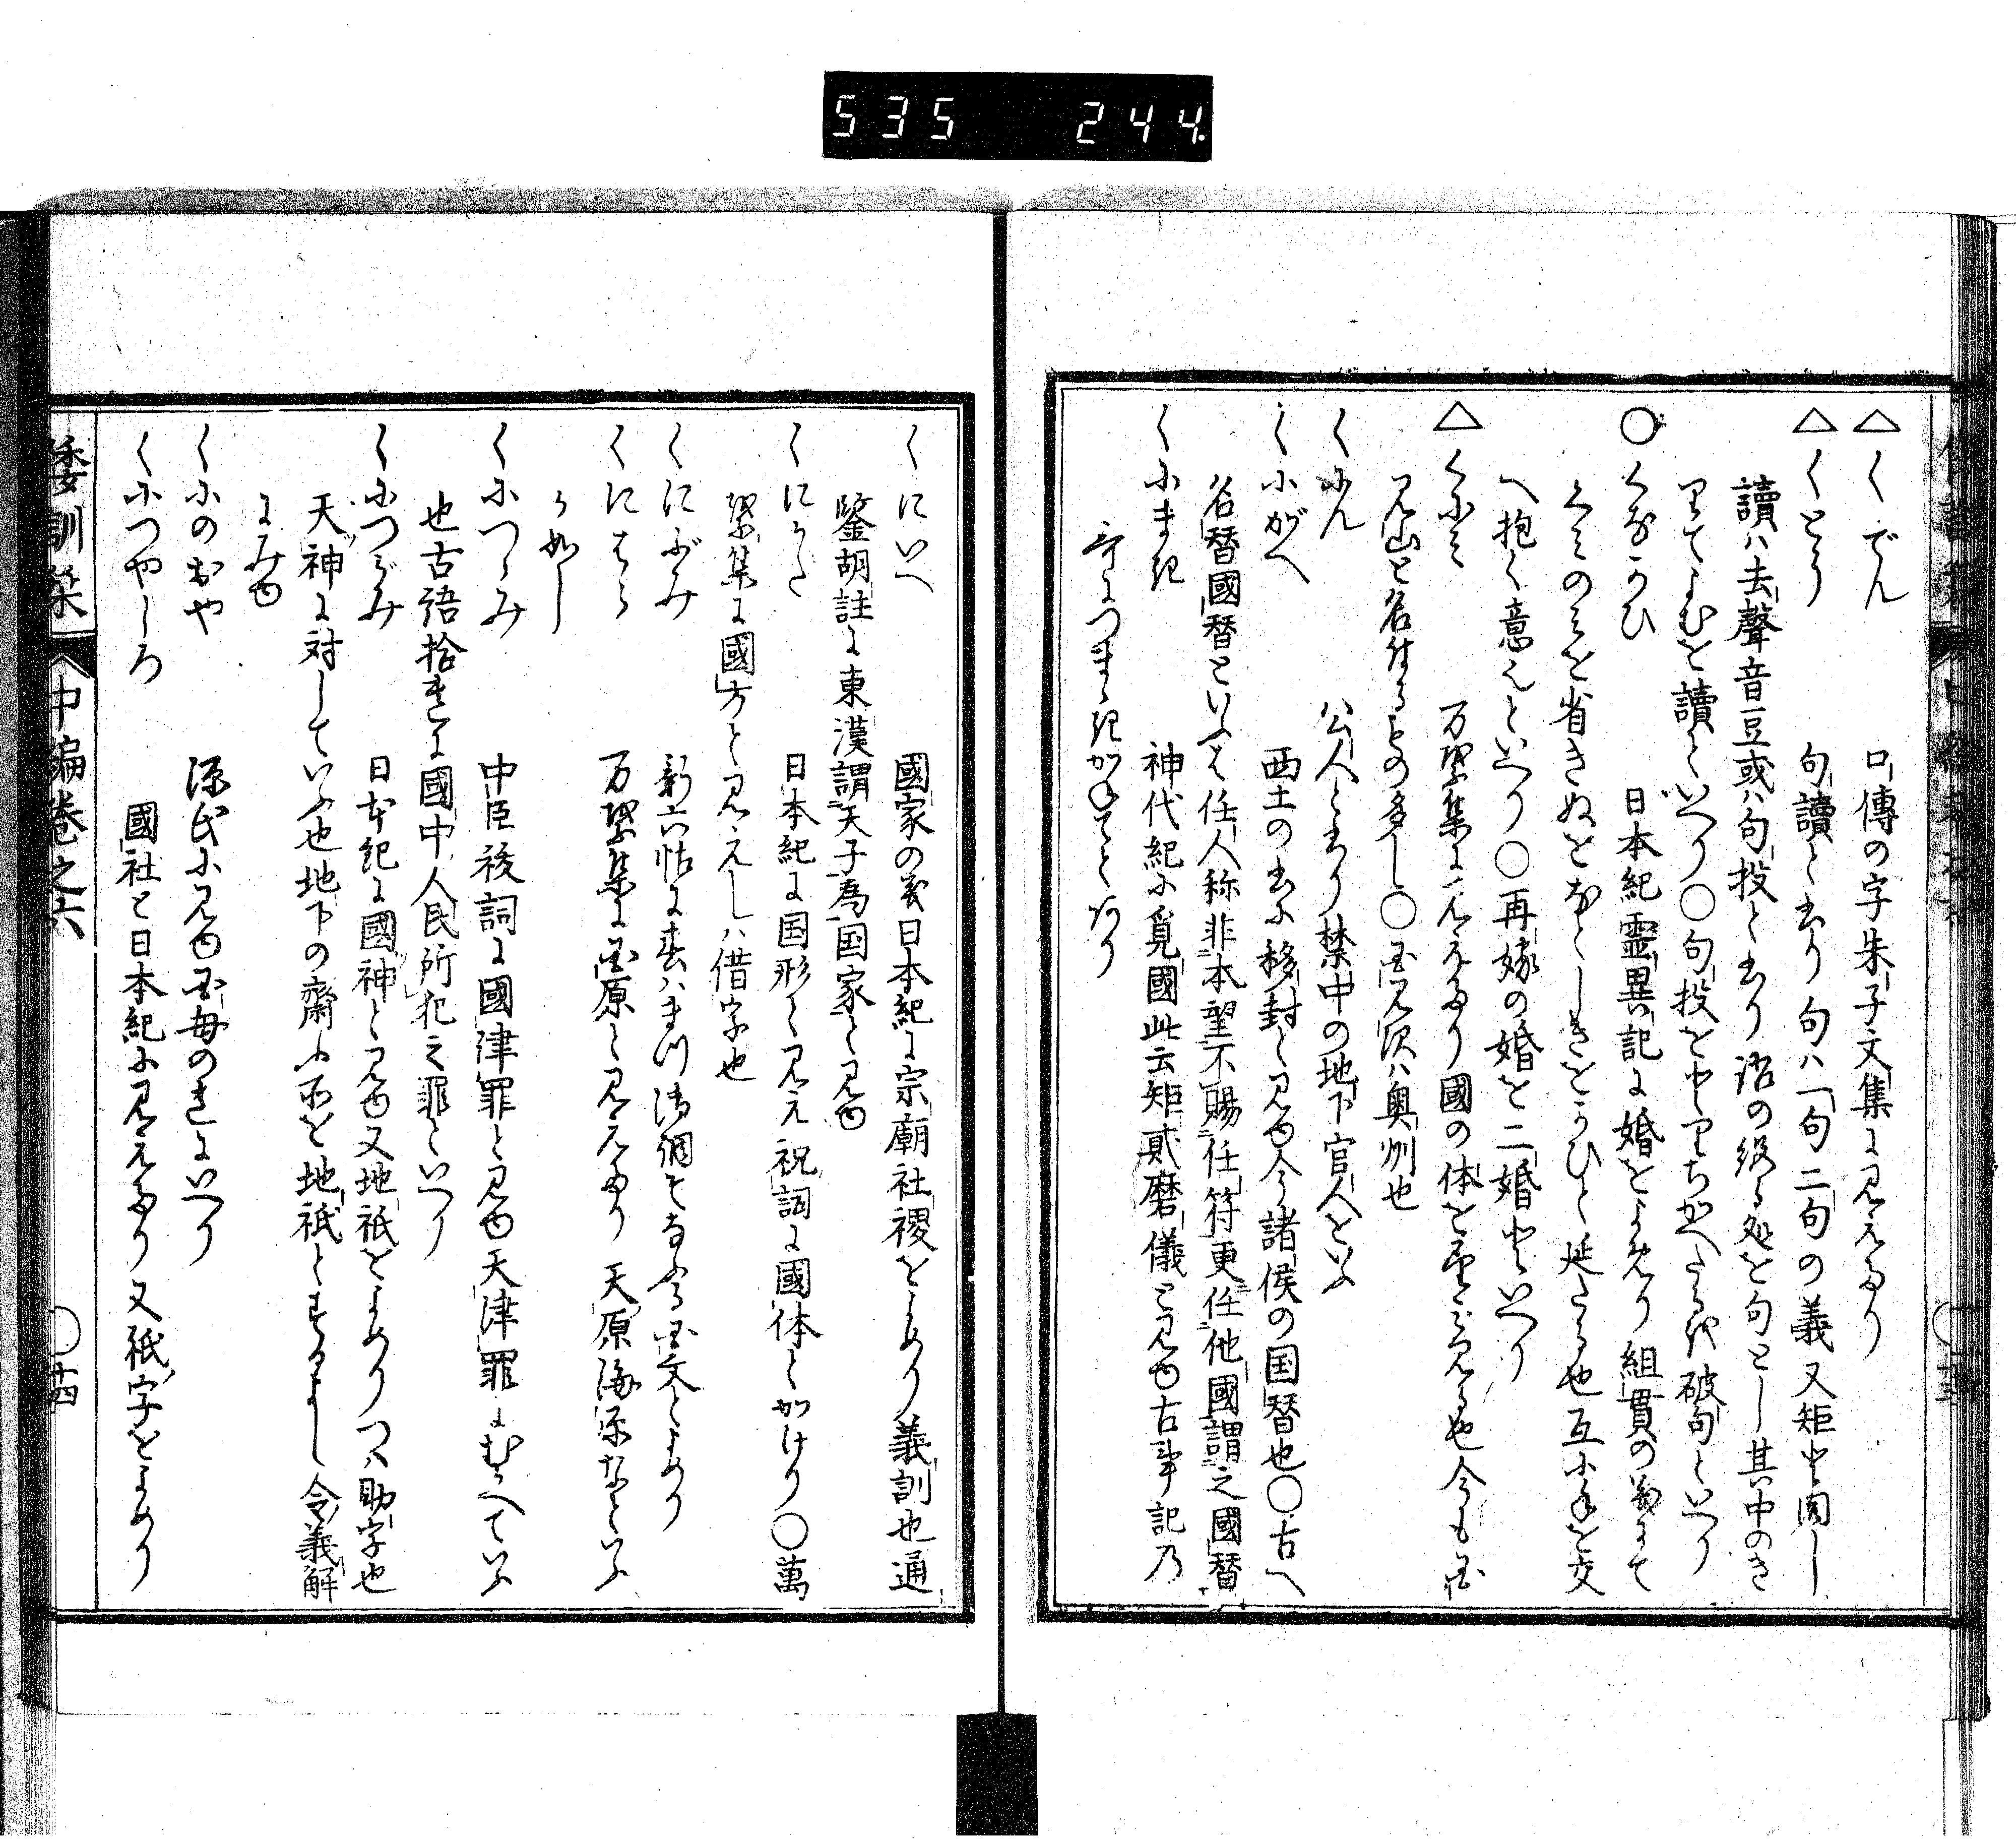 535 244
△くでん 口傳の字朱子文集に見えたり
△くとう 句讀と書り句ハ一句二句の義又矩と同し
讀ハ去聲音豆或ハ句投と書り語の絶る処を句とし其中のき
りてよむを讀といへり○句投をとりちがへたるを破句といへり
○くながひ 日本紀靈異記に婚をよめり組貫の義にて
くみのみを省きぬをなとしきをかひと延たる也互に手を交
へ抱く意也といへり○再嫁の婚を二婚といへり
△くにみ 万葉集に見えたり國の体を望ミ見る也今も国
見山と名付るもの多し○国見沢ハ奥州也
くにん 公人と書り禁中の地下官人をいふ
くにがへ 西土の書に移封と見ゆ今諸侯の国替也○古へ
名替國替といふは任人称非本望不賜任符更任他國謂之國替
くにまき 神代紀に覓國此云矩貳磨儀と見ゆ古事記乃
哥につまゝきかねてとあり
くにいへ 國家の義日本紀に宗廟社稷をよめり義訓也通
鑒胡註に東漢謂天子為国家と見ゆ
くにかた 日本紀に国形と見え祝詞に國体とかけり○萬
葉集に國方と見えしハ借字也
くにぶみ 新六帖に春ハまづ清綱そなふる国文とよめり
くにはら 万葉集に国原と見えたり天原海原なといふ
か如し
くにつゝみ 中臣祓詞に國津罪と見ゆ天津罪にむかへていふ
也古語拾遺に國中人民所犯之罪といへり
くにつがみ 日本紀に國神と見ゆ又地祇をよめりつハ助字也
天神に対していふ也地下の齋ふ所を地祇とするよし令義解
にみゆ
くにのおや 源氏に見ゆ国母のきにいへり
くにつやしろ 國社と日本紀に見えたり又祇字をよめり
倭訓栞 中編巻之六 ○十四